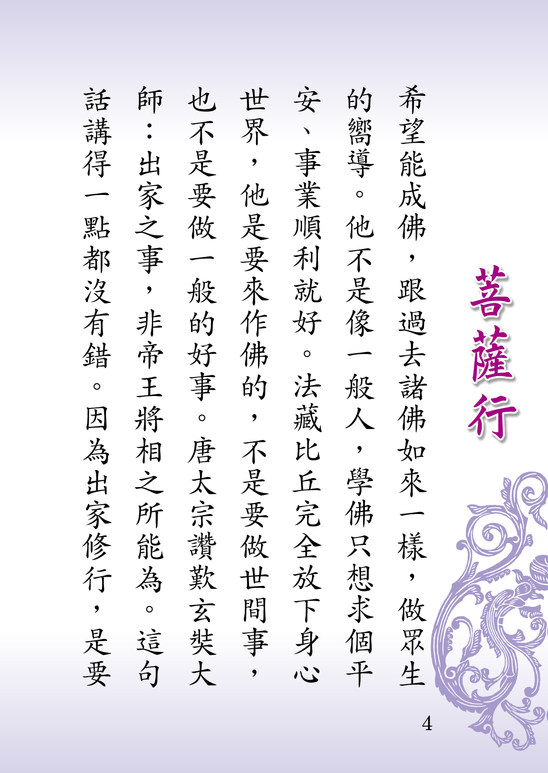 菩薩行
希望能成佛，跟過去諸佛如來一樣，做眾生
的嚮導。他不是像一般人，學佛只想求個平
安、事業順利就好。法藏比丘完全放下身心
世界，他是要來作佛的，不是要做世間事，
也不是要做一般的好事。唐太宗讚歎玄奘大
師：出家之事，非帝王將相之所能為。這句
話講得一點都沒有錯。因為出家修行，是要
4